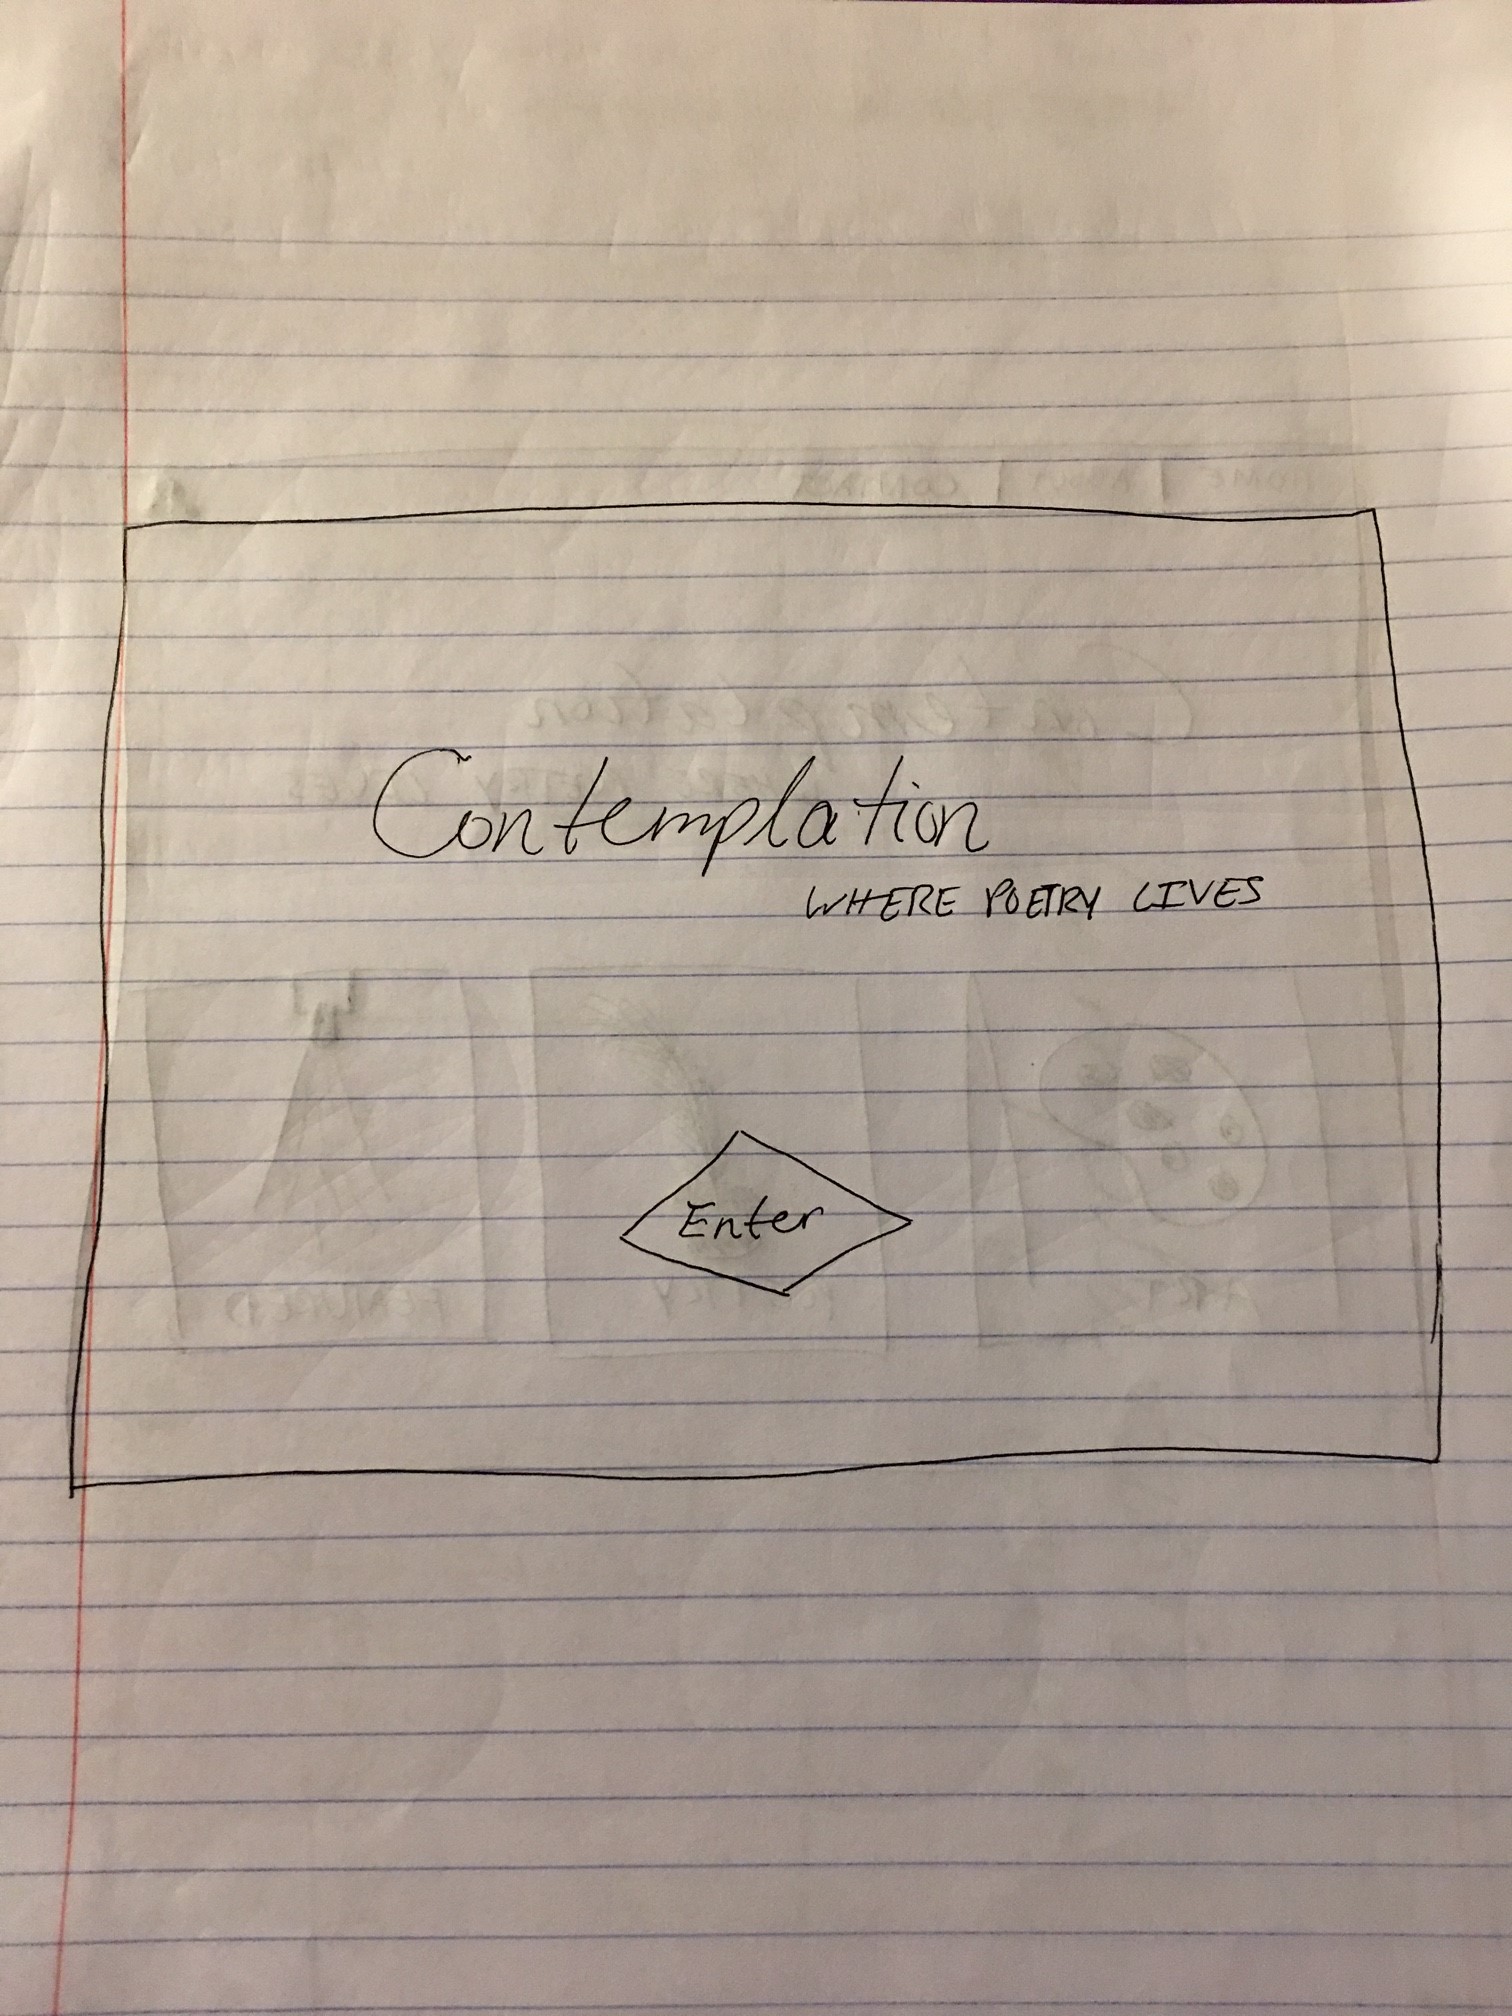 Contemplation
WHERE POETRY LIVES
Enter